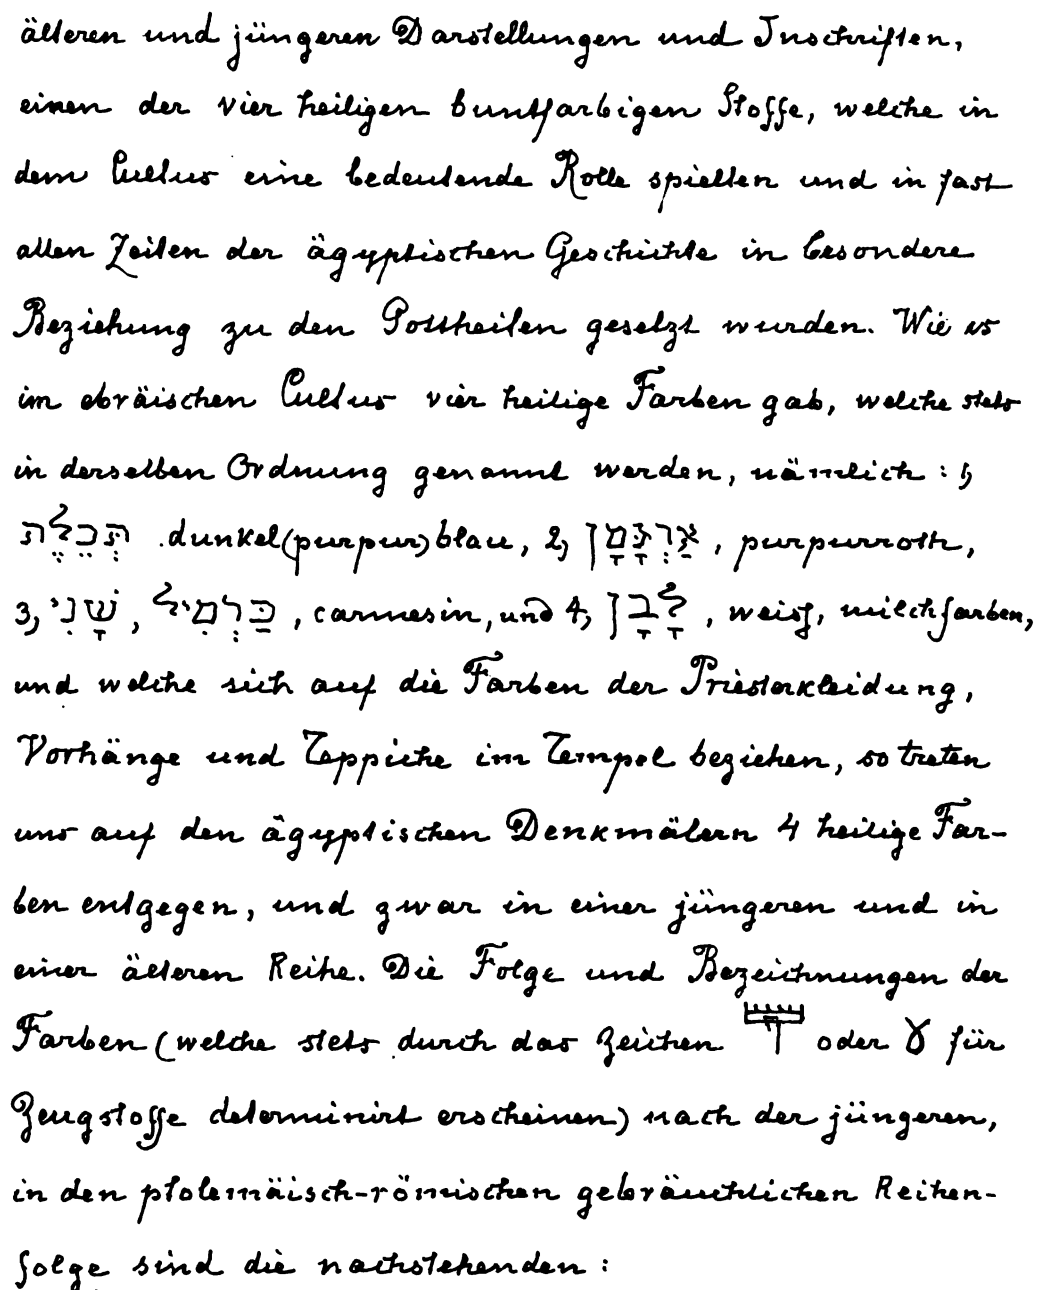 älteren und jüngeren Darstellungen und Inschriften,
einen der vier heiligen buntfarbigen Stoffe, welche in
dem Cultus eine bedeutende Rolle spielten und in fast
allen Zeiten der ägyptischen Geschichte in besondere
Beziehung zu den Gottheiten gesetzt wurden. Wie es
im ebräischen Cultus vier heilige Farben gab, welche stets
in derselben Ordnung genannt werden, nämlich: 1,
תְּכֵלֶת dunkel(purpur)blau, 2, אַרְגָּמָן, purpurroth,
3, שָׁנִי, כַּרְמִיל, carmesin, und 4, לָבָן, weiß, milchfarben,
und welche sich auf die Farben der Priesterkleidung,
Vorhänge und Teppiche im Tempel beziehen, so treten
uns auf den ägyptischen Denkmälern 4 heilige Far-
ben entgegen, und zwar in einer jüngeren und in
einer älteren Reihe. Die Folge und Bezeichnungen der
Farben (welche stets durch das Zeichen oder für
Zeugstoffe determinirt erscheinen) nach der jüngeren,
in den ptolemäisch-römischen gebräuchlichen Reihen-
folge sind die nachstehenden: